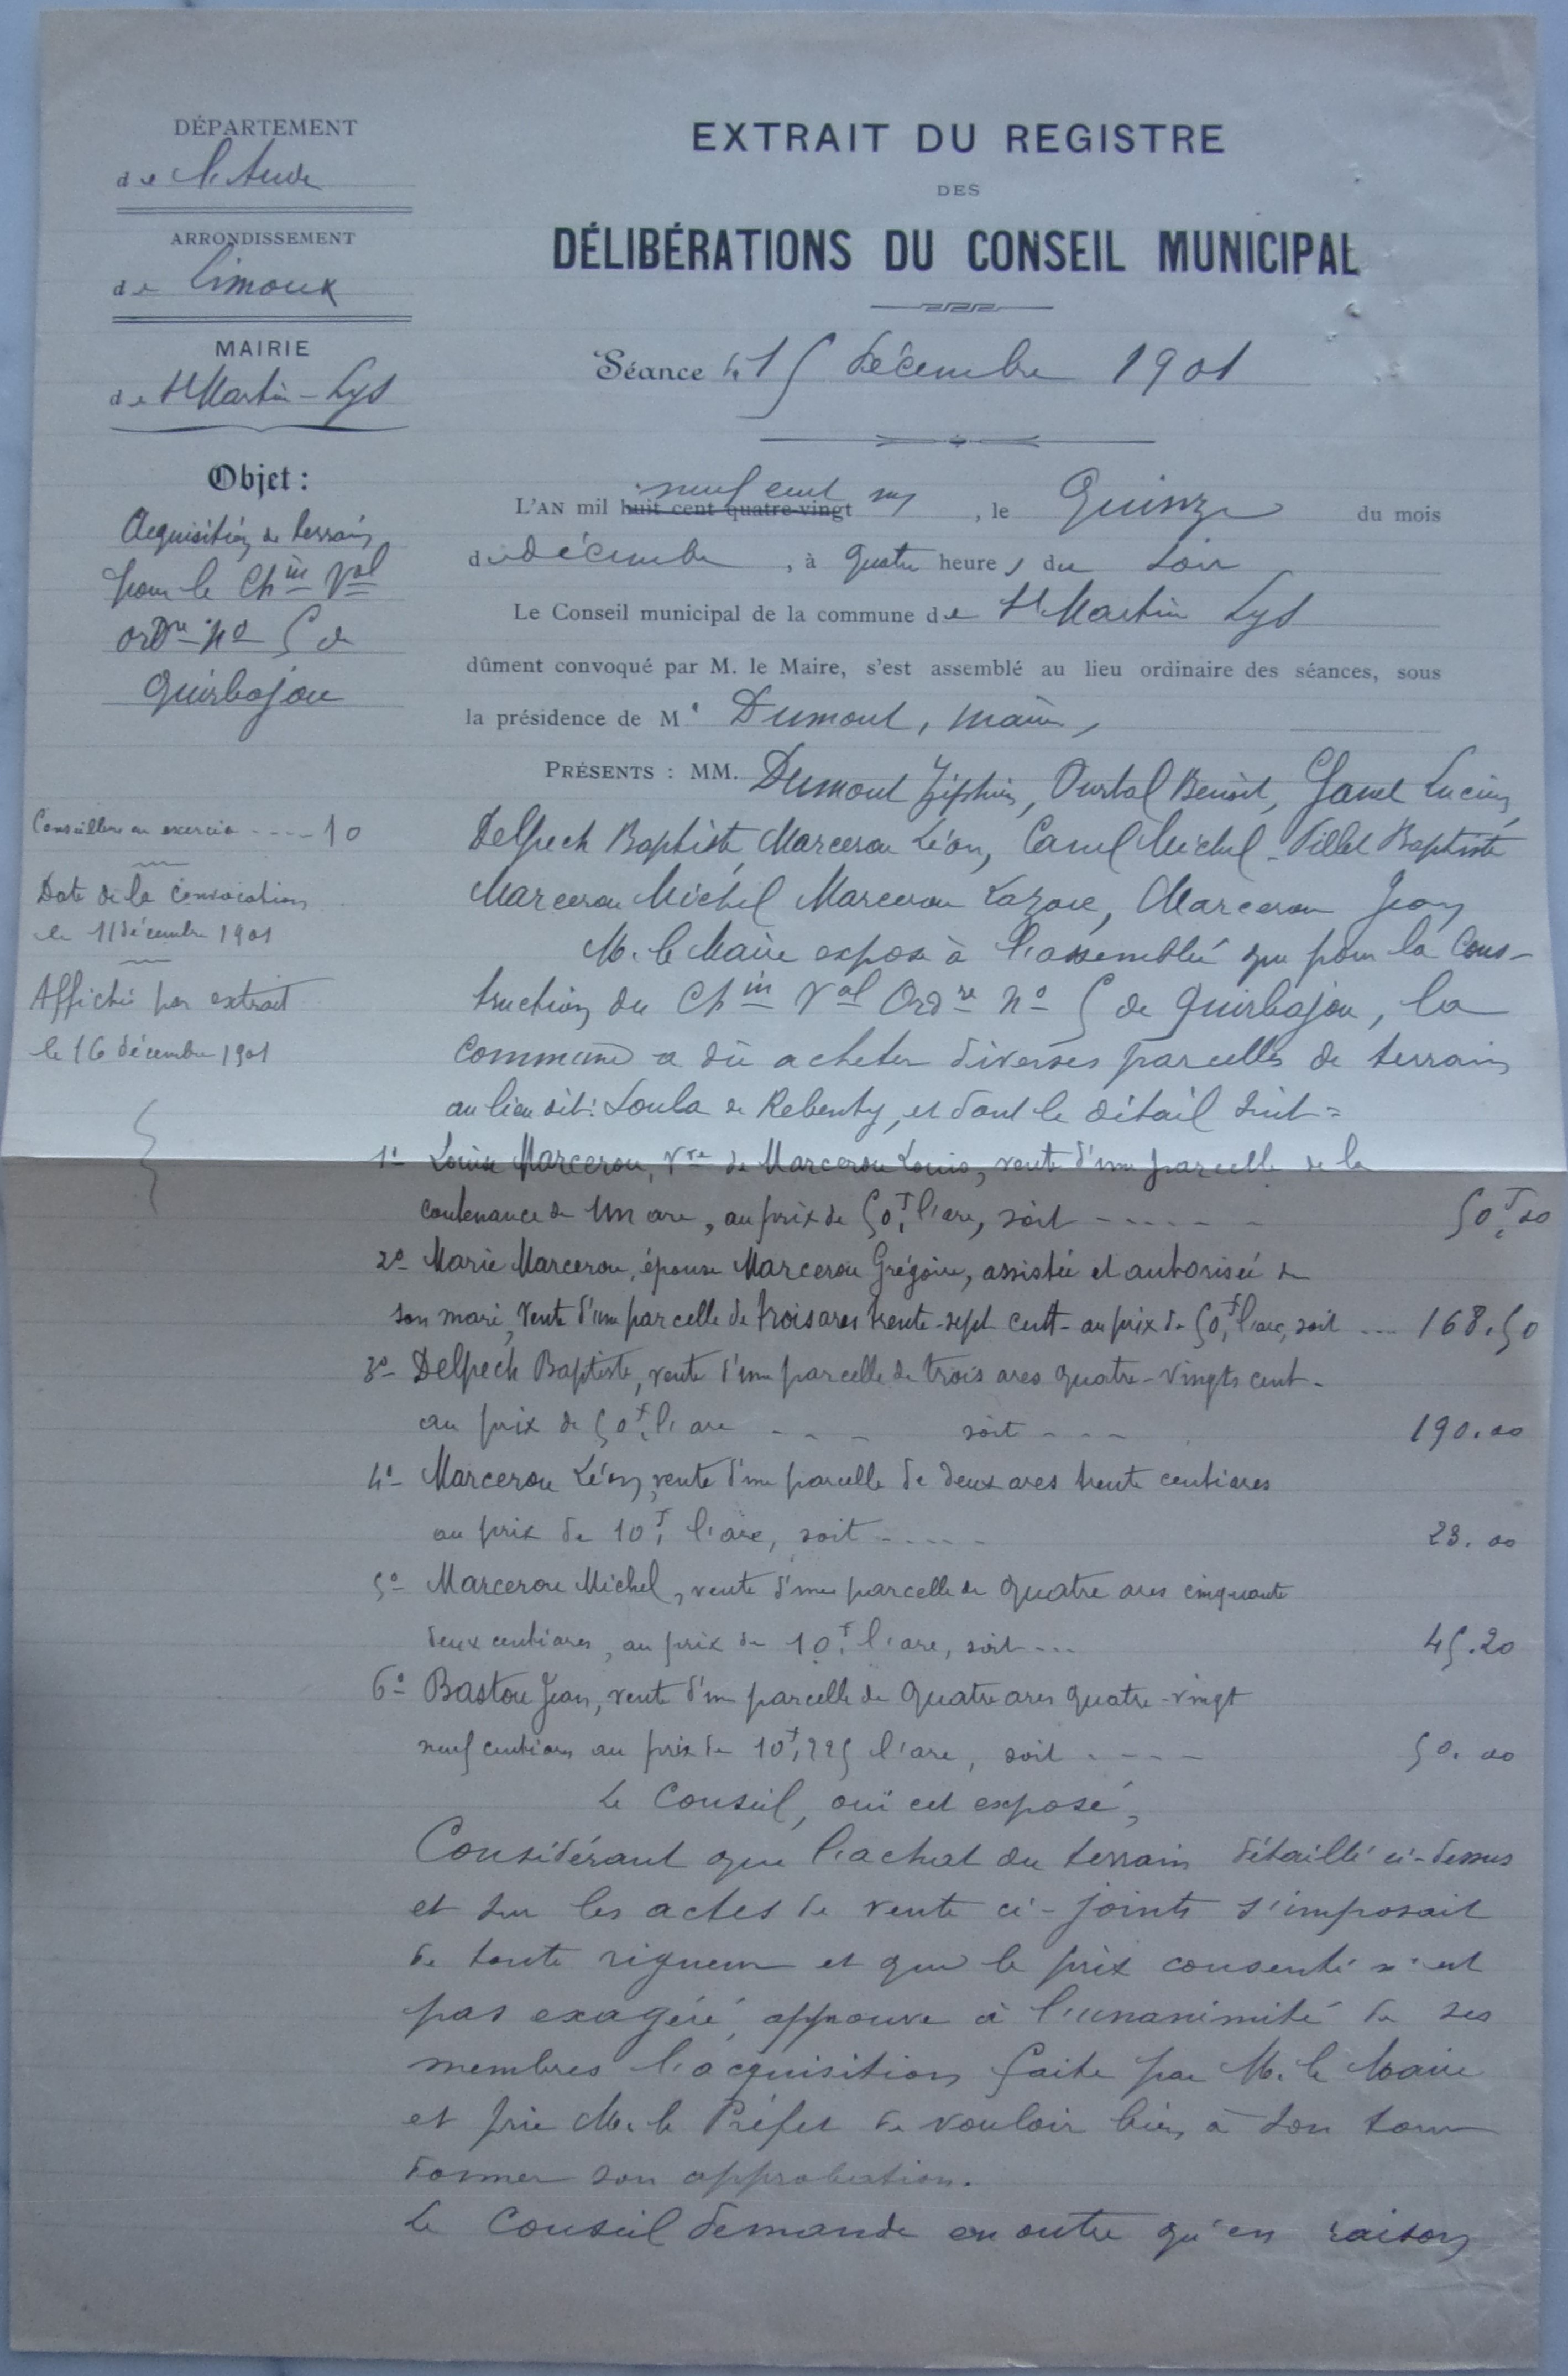 DÉPARTEMENT
de l'Aude
ARRONDISSEMENT
de Limoux
MAIRIE
de St Martin-Lys
Objet :
Acquisition de terrain
pour le Chin Val
ordre No 5 de
Quirbajou
Conseillers en exercice ---- 10
Date de la convocation
le 11 décembre 1901
Affiché par extrait
le 16 décembre 1901
EXTRAIT DU REGISTRE
DES
DÉLIBÉRATIONS DU CONSEIL MUNICIPAL
Séance du 15 décembre 1901
L'AN mil huit cent quatre-vingt neuf cent un, le Quinze du mois
de décembre, à quatre heures du soir
Le Conseil municipal de la commune de St Martin Lys
dûment convoqué par M. le Maire, s'est assemblé au lieu ordinaire des séances, sous
la présidence de M. Dumont, maire,
PRÉSENTS : MM. Dumont Zéphirin, Ourtal Benoit, Canel Lucien,
Delpech Baptiste, Marcerou Léon, Canel Michel - Pillet Baptiste
Marcerou Michel Marcerou Lazare, Marcerou Jean
M. le Maire expose à l'assemblée que pour la cons-
truction du Chin Val Ordre No 5 de Quirbajou, la
commune a dû acheter diverses parcelles de terrain
au lieu dit: Soula de Rebenty, et dont le détail suit =
1o Louise Marcerou, Vve de Marcerou Louis, vente d'une parcelle de la
contenance de un are, au prix de 50f, l'are, soit ------ 50f,00
2o Marie Marcerou, épouse Marcerou Grégoire, assistée et autorisée de
son mari, vente d'une parcelle de trois ares trente-sept cent- au prix de 50f, l'are, soit --- 168.50
3o Delpech Baptiste, vente d'une parcelle de trois ares quatre-vingts cent-
au prix de 50f, l'are --- soit --- 190.00
4o Marcerou Léon, vente d'une parcelle de deux ares trente centiares
au prix de 10f, l'are, soit ----- 23.00
5o Marcerou Michel, vente d'une parcelle de quatre ares cinquante
deux centiares, au prix de 10f, l'are, soit --- 45.20
6o Bastou Jean, vente d'une parcelle de quatre ares quatre-vingt
neuf centiares au prix de 10f,225 l'are, soit ---- 50.00
Le Conseil, ouï cet exposé,
Considérant que l'achat du terrain détaillé ci-dessus
et sur les actes de vente ci-joints s'imposait
de toute rigueur et que le prix consenti n'est
pas exagéré, approuve à l'unanimité de ses
membres l'acquisition faite par M. le Maire
et prie M. le Préfet de vouloir bien à son tour
donner son approbation.
Le Conseil demande en outre qu'en raison